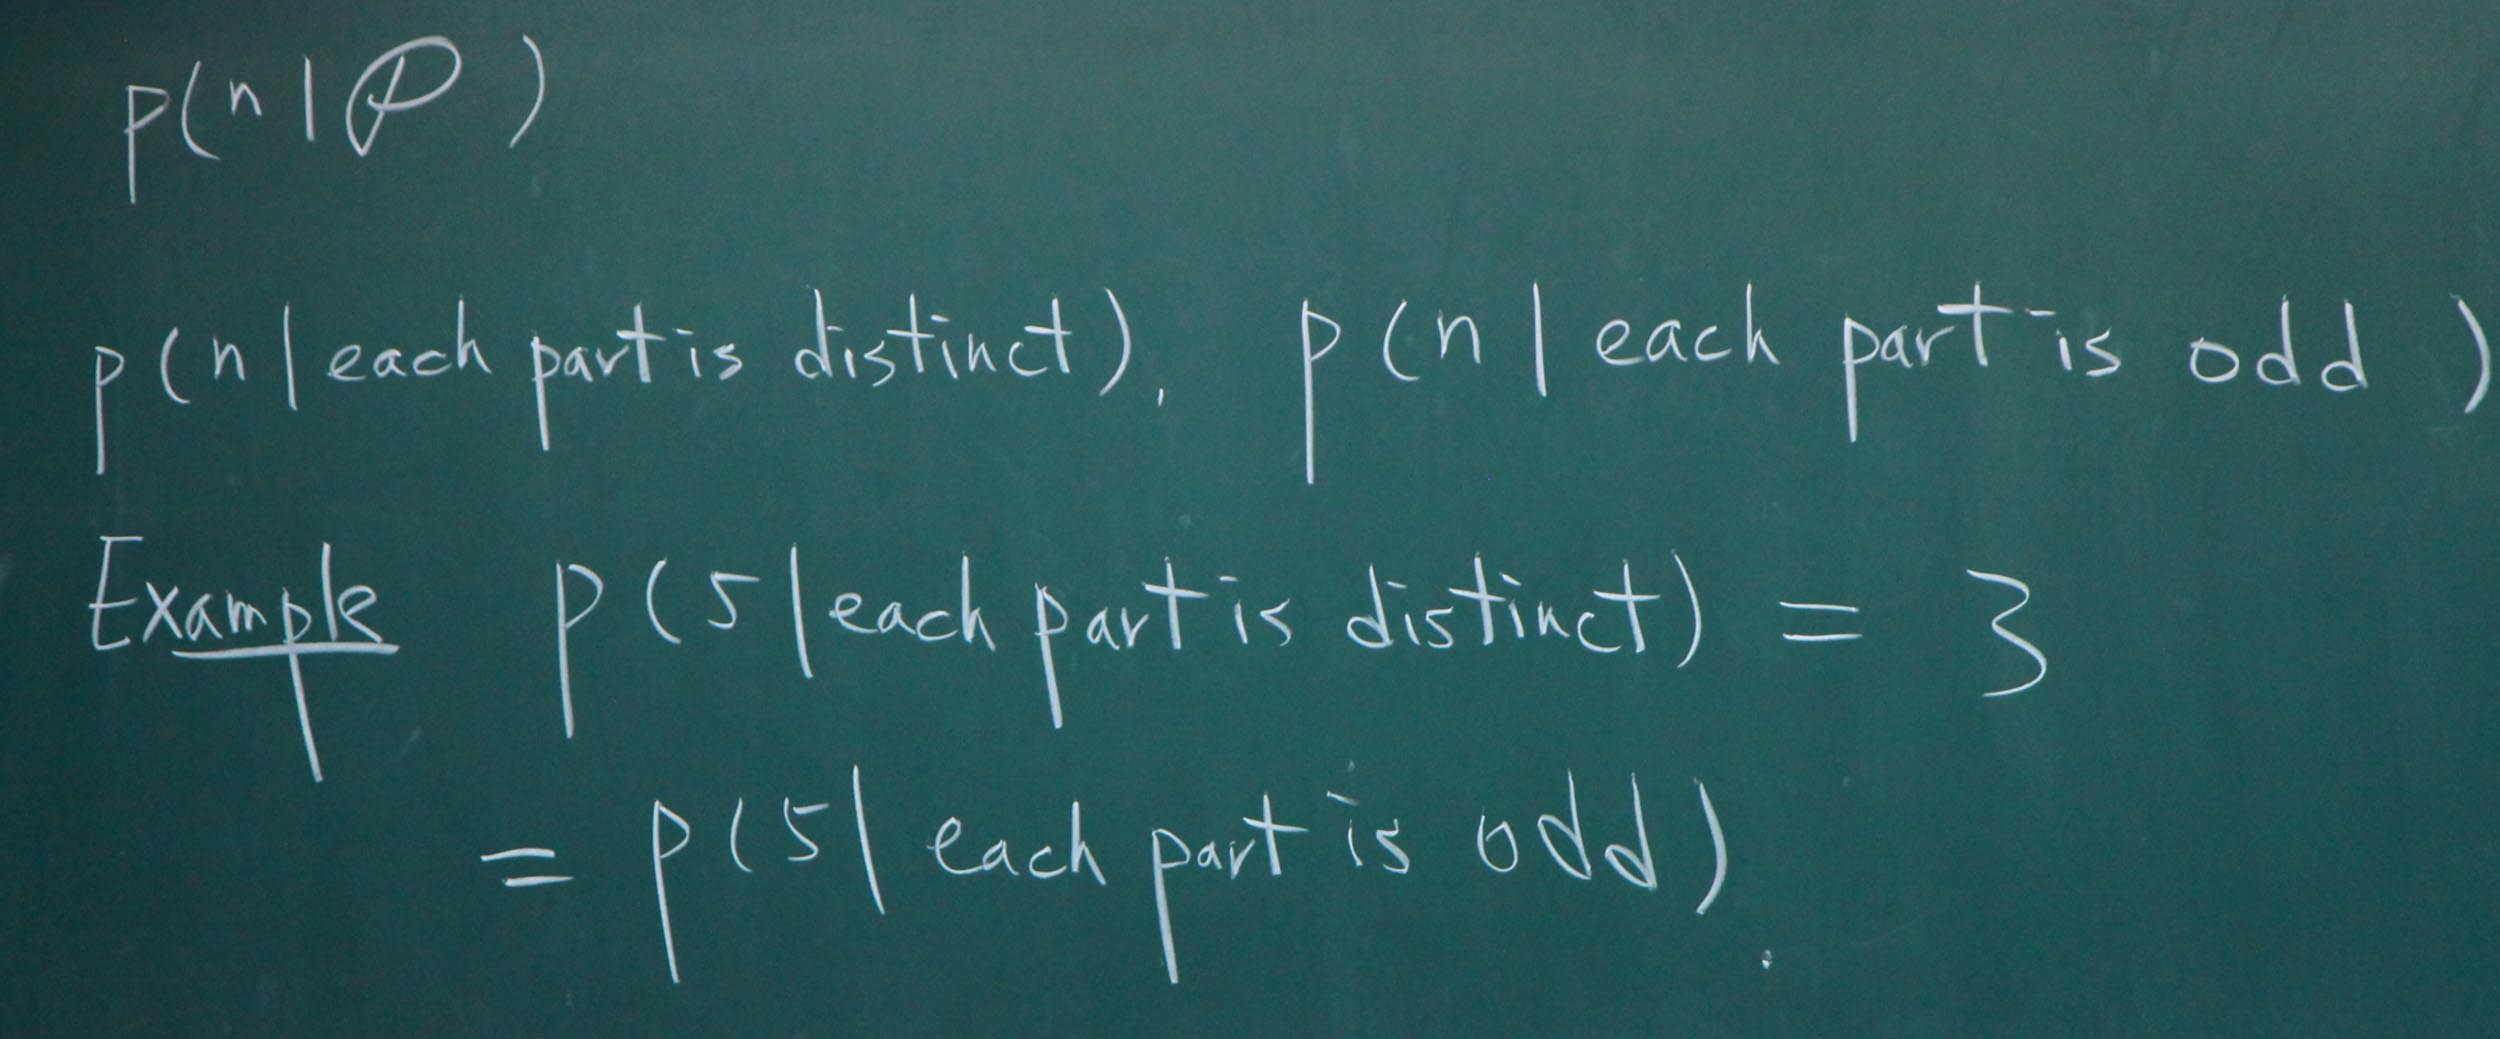 p(n | 𝒫)
p(n | each part is distinct), p(n | each part is odd)
Example p(5 | each part is distinct) = 3
= p(5 | each part is odd).